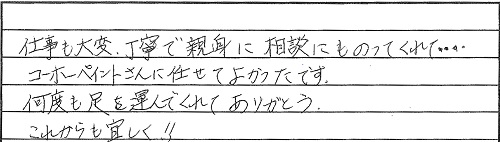 仕事も大変、丁寧で親身に相談にものってくれて‥‥
コーホーペイントさんに任せてよかったです。
何度も足を運んでくれてありがとう。
これからも宜しく!!